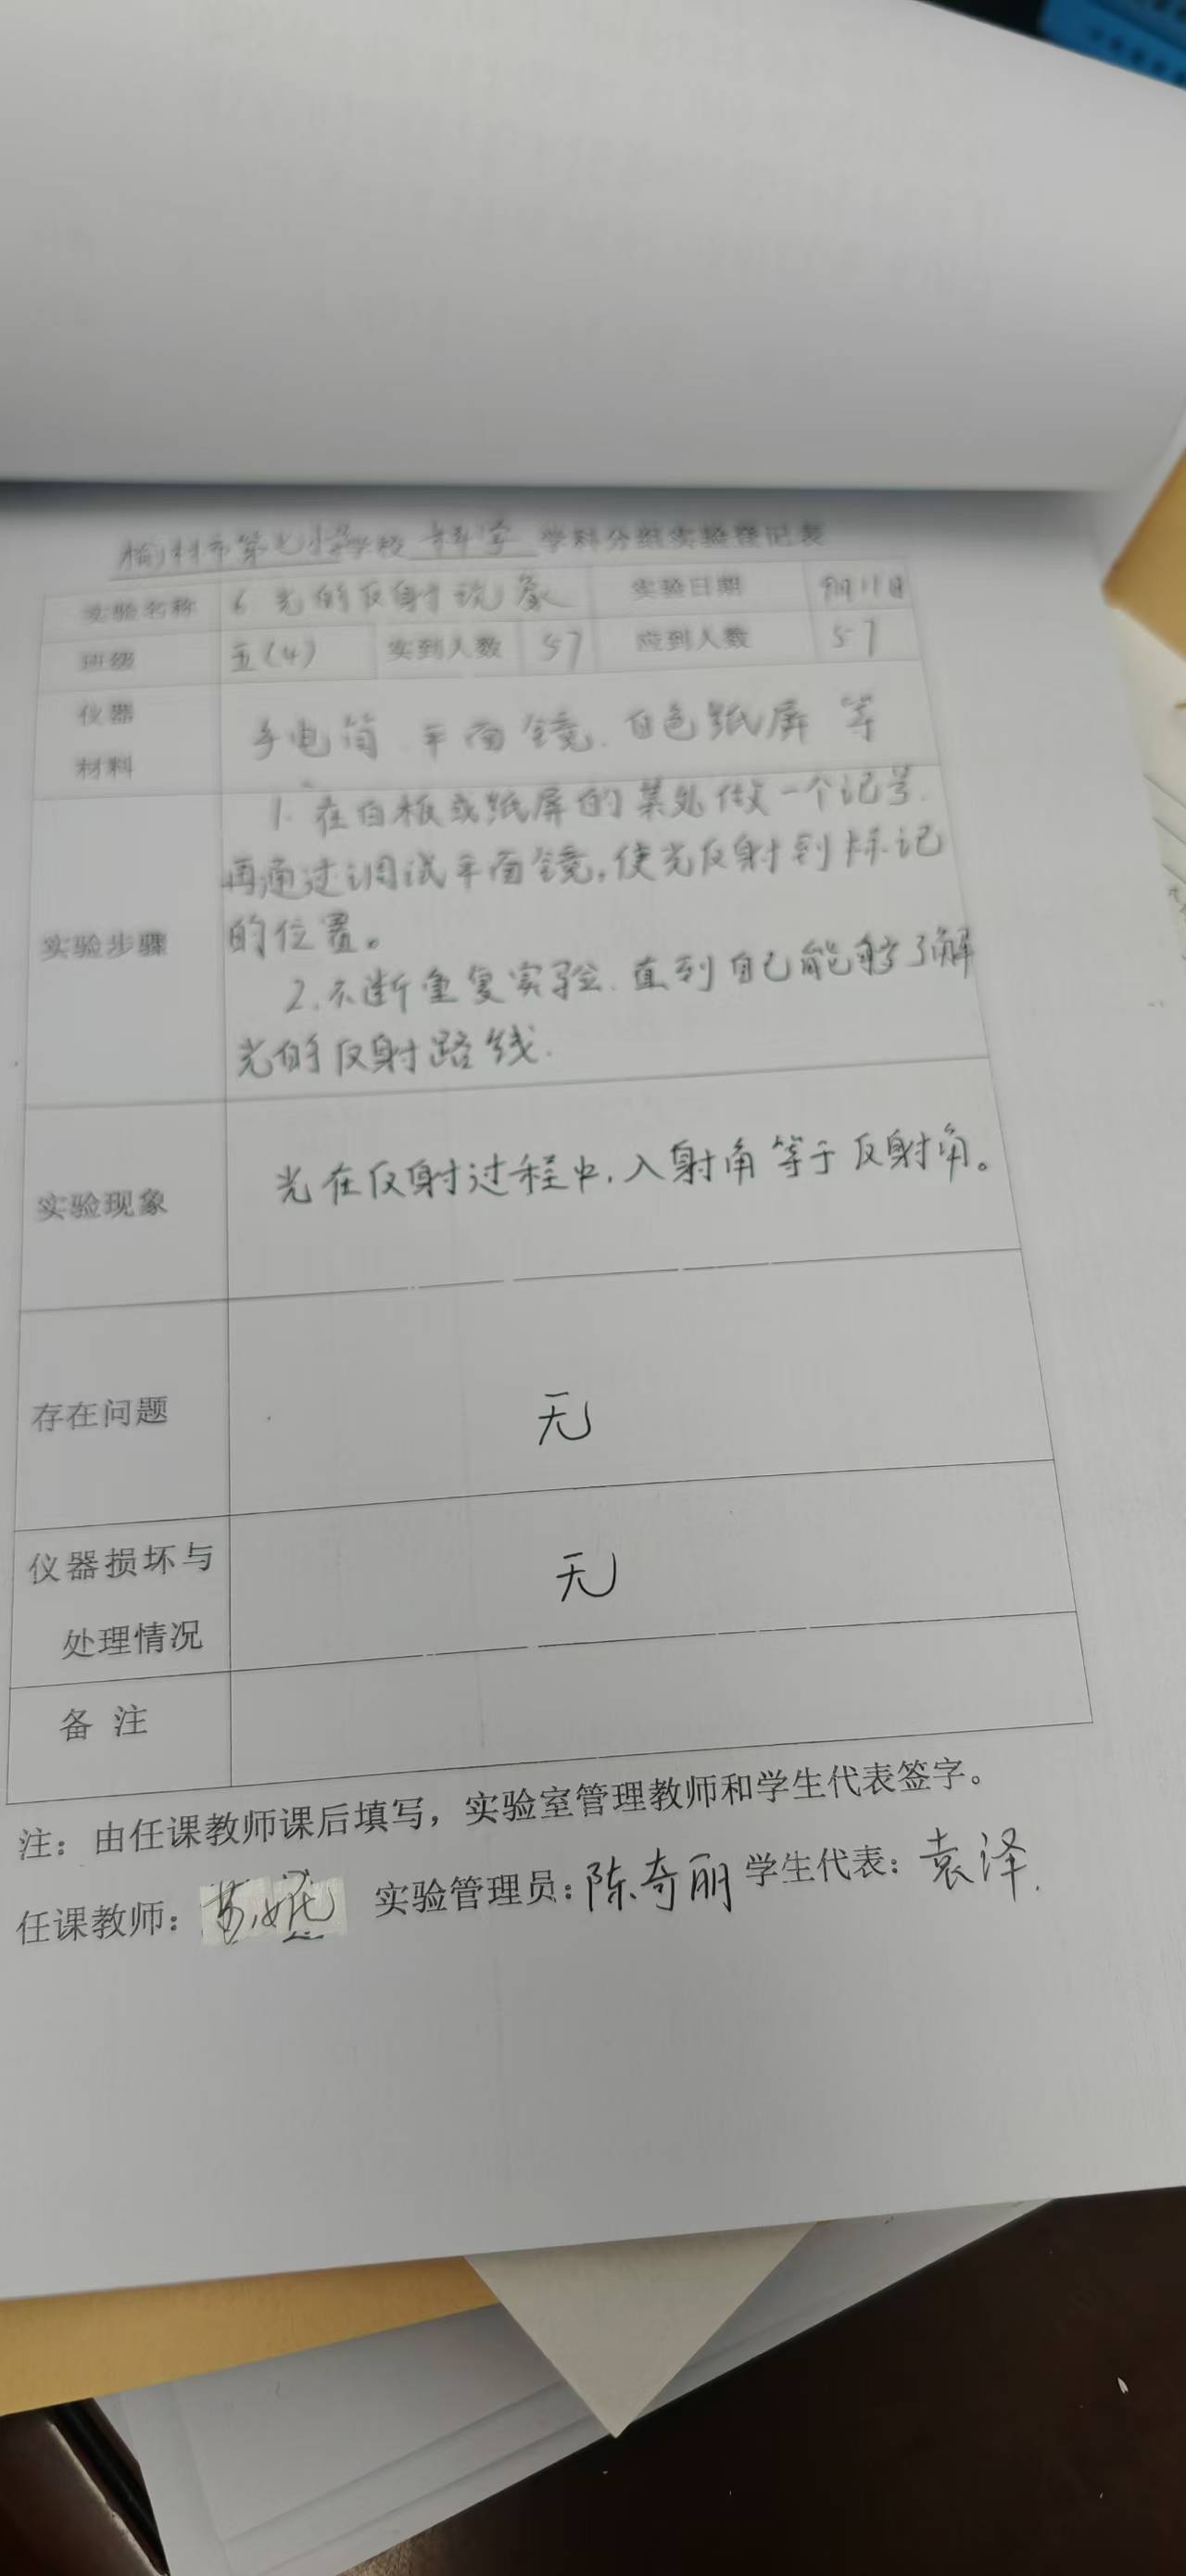 榆林市第七小学学校 科学 学科分组实验登记表
实验名称 6 光的反射现象 实验日期 9月11日
班级 五(4) 实到人数 57 应到人数 57
仪器
材料
手电筒、平面镜、白色纸屏 等
实验步骤
1. 在白板或纸屏的某处做一个记号.
再通过调试平面镜,使光反射到标记
的位置。
2. 不断重复实验. 直到自己能够了解
光的反射路线.
实验现象
光在反射过程中,入射角等于反射角。
存在问题 无
仪器损坏与
处理情况
无
备 注
注：由任课教师课后填写，实验室管理教师和学生代表签字。
任课教师： 实验管理员：陈奇丽 学生代表：袁泽.